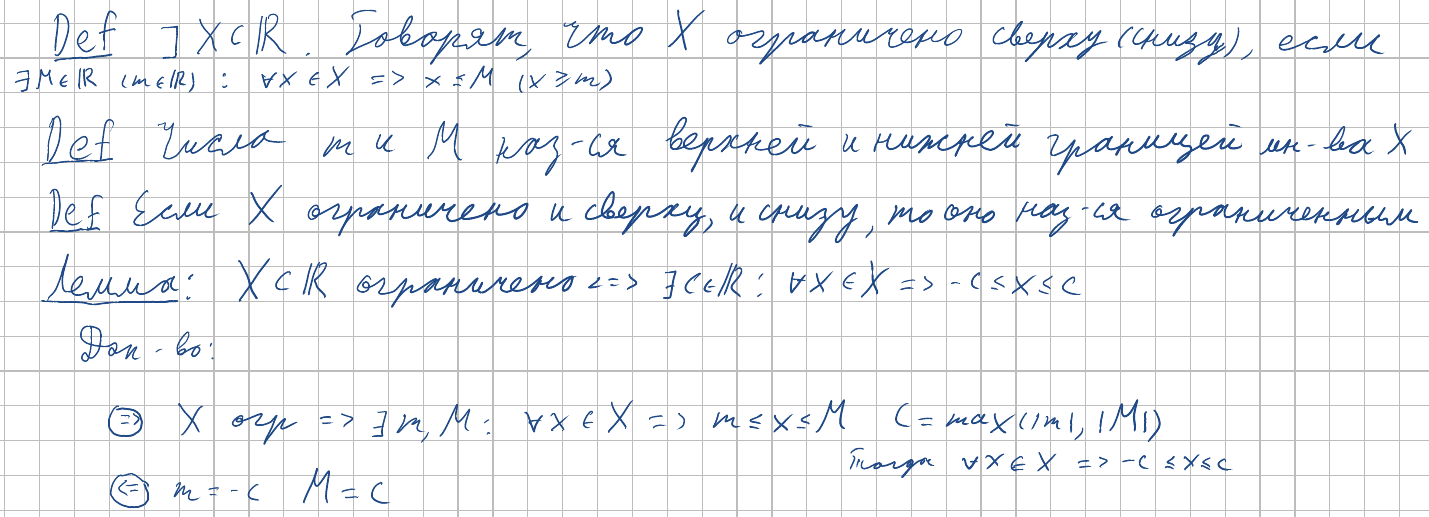 Def ] X ⊂ ℝ. Говорят, что X ограничено сверху (снизу), если
∃ M ∈ ℝ (m ∈ ℝ) : ∀x ∈ X => x ≤ M (x ≥ m)
Def Числа m и M наз-ся верхней и нижней границей мн-ва X
Def Если X ограничено и сверху, и снизу, то оно наз-ся ограниченным
Лемма: X ⊂ ℝ ограничено <=> ∃ C ∈ ℝ : ∀x ∈ X => -C ≤ x ≤ C
Док-во:
(=>) X огр => ∃ m, M : ∀x ∈ X => m ≤ x ≤ M C = max(|m|, |M|)
Тогда ∀x ∈ X => -C ≤ x ≤ C
(<=) m = -C M = C